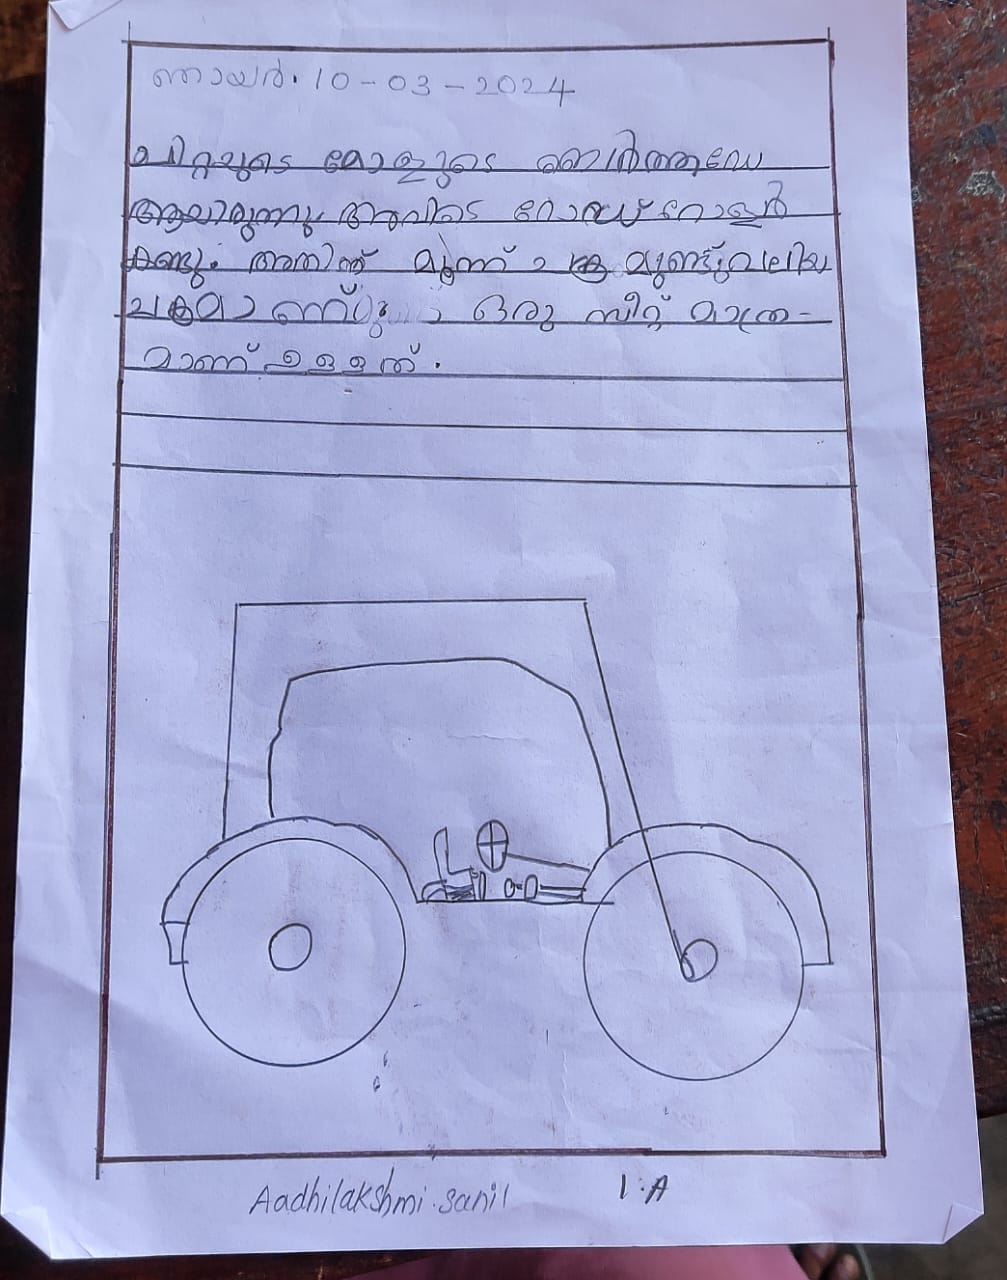 ഞായർ. 10-03-2024
ചിറ്റയുടെ മോളുടെ ബെർത്തുഡേ
ആയിരുന്നു. അവിടെ റോഡ് റോളർ
കണ്ടു. അതിന്ന് മൂന്ന് ച ക്ര മുണ്ട് വലിയ
ചക്രമാ ണ്ണ് ഒരു സീറ്റ് മാത്ര-
മാണ് ഉള്ളത്.
Aadhilakshmi.sanil 1.A